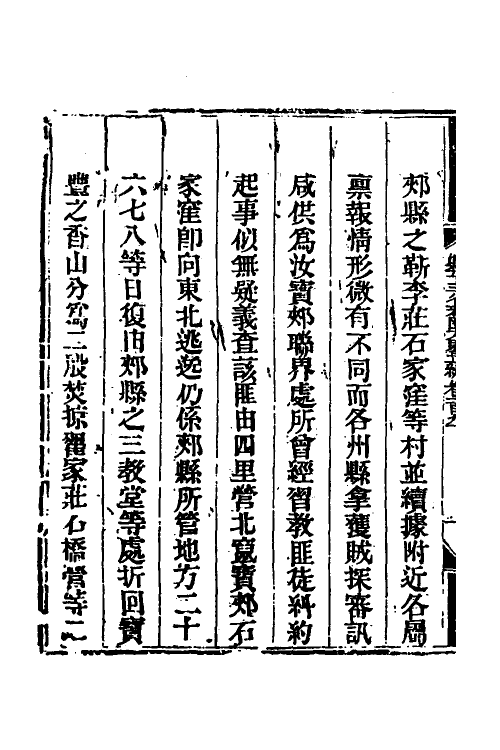 郟縣之靳李莊石家窪等村並續據附近各屬
禀報情形微有不同而各州縣拿獲賊探審訊
咸供爲汝寶郟聯界處所曾經習教匪徒糾約
起事似無疑義查該匪由四里營北竄寶郟石
家窪卽向東北逃逸仍係郟縣所管地方二十
六七八等日復由郟縣之三教堂等處折回寶
豐之香山分爲三股焚掠翟家莊石橋營等二